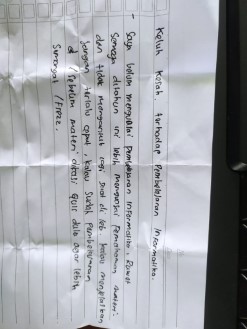 Keluh kesah terhadap Pembelajaran Informatika.
- Saya belum menguasai Pembelajaran Informatika.
Semoga ditahun ini lebih menguasai Pemahaman materi.
dan tidak mengantuk lagi saat di leb. kalau menjelaskan
Jangan terlalu cepat, kalau sudah pembelajaran
/ sebelum materi dikasi Quis dulu agar lebih
Semangat / Frezz.